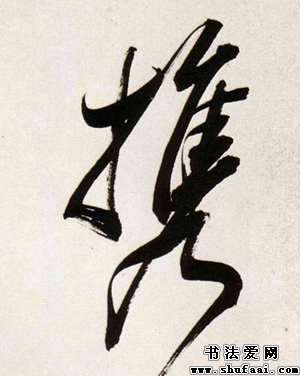 携
书法爱网
www.shufaai.com